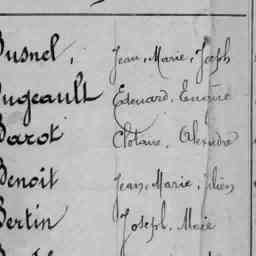 Busnel, Jean, Marie, Joseph
Bugeault Edouard, Eugène
Barot Clotaire, Alexandre
Benoit Jean, Marie, Julien
Bertin Joseph, Marie